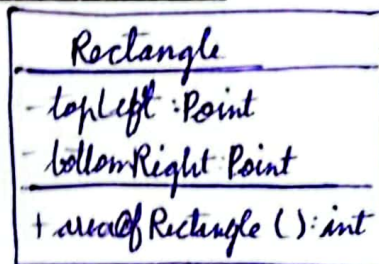 Rectangle
- topLeft : Point
- bottomRight Point
+ areaOfRectangle ( ) : int